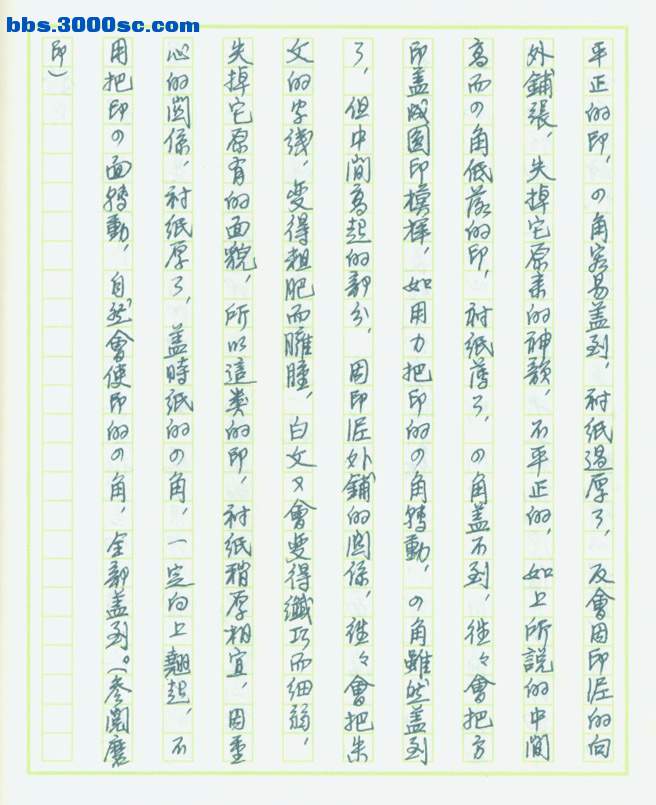 bbs.3000sc.com
平正的印，四角容易盖到，衬纸過厚了，反會因印泥的向
外鋪張，失掉它原来的神韻，不平正的，如上所説的中間
高而四角低落的印，衬纸薄了，四角盖不到，往々會把方
印盖成圆印模樣，如用力把印的四角轉動，四角雖然盖到
了，但中間高起的部分，因印泥外鋪的関係，往々會把朱
文的字线，变得粗肥而臃腫，白文又會变得纖巧而细弱，
失掉它原有的面貌，所以這类的印，衬纸稍厚相宜，因重
心的関係，衬纸厚了，盖時纸的四角，一定向上翘起，不
用把印四面轉動，自然會使印的四角，全部盖到。（参閲磨
印）